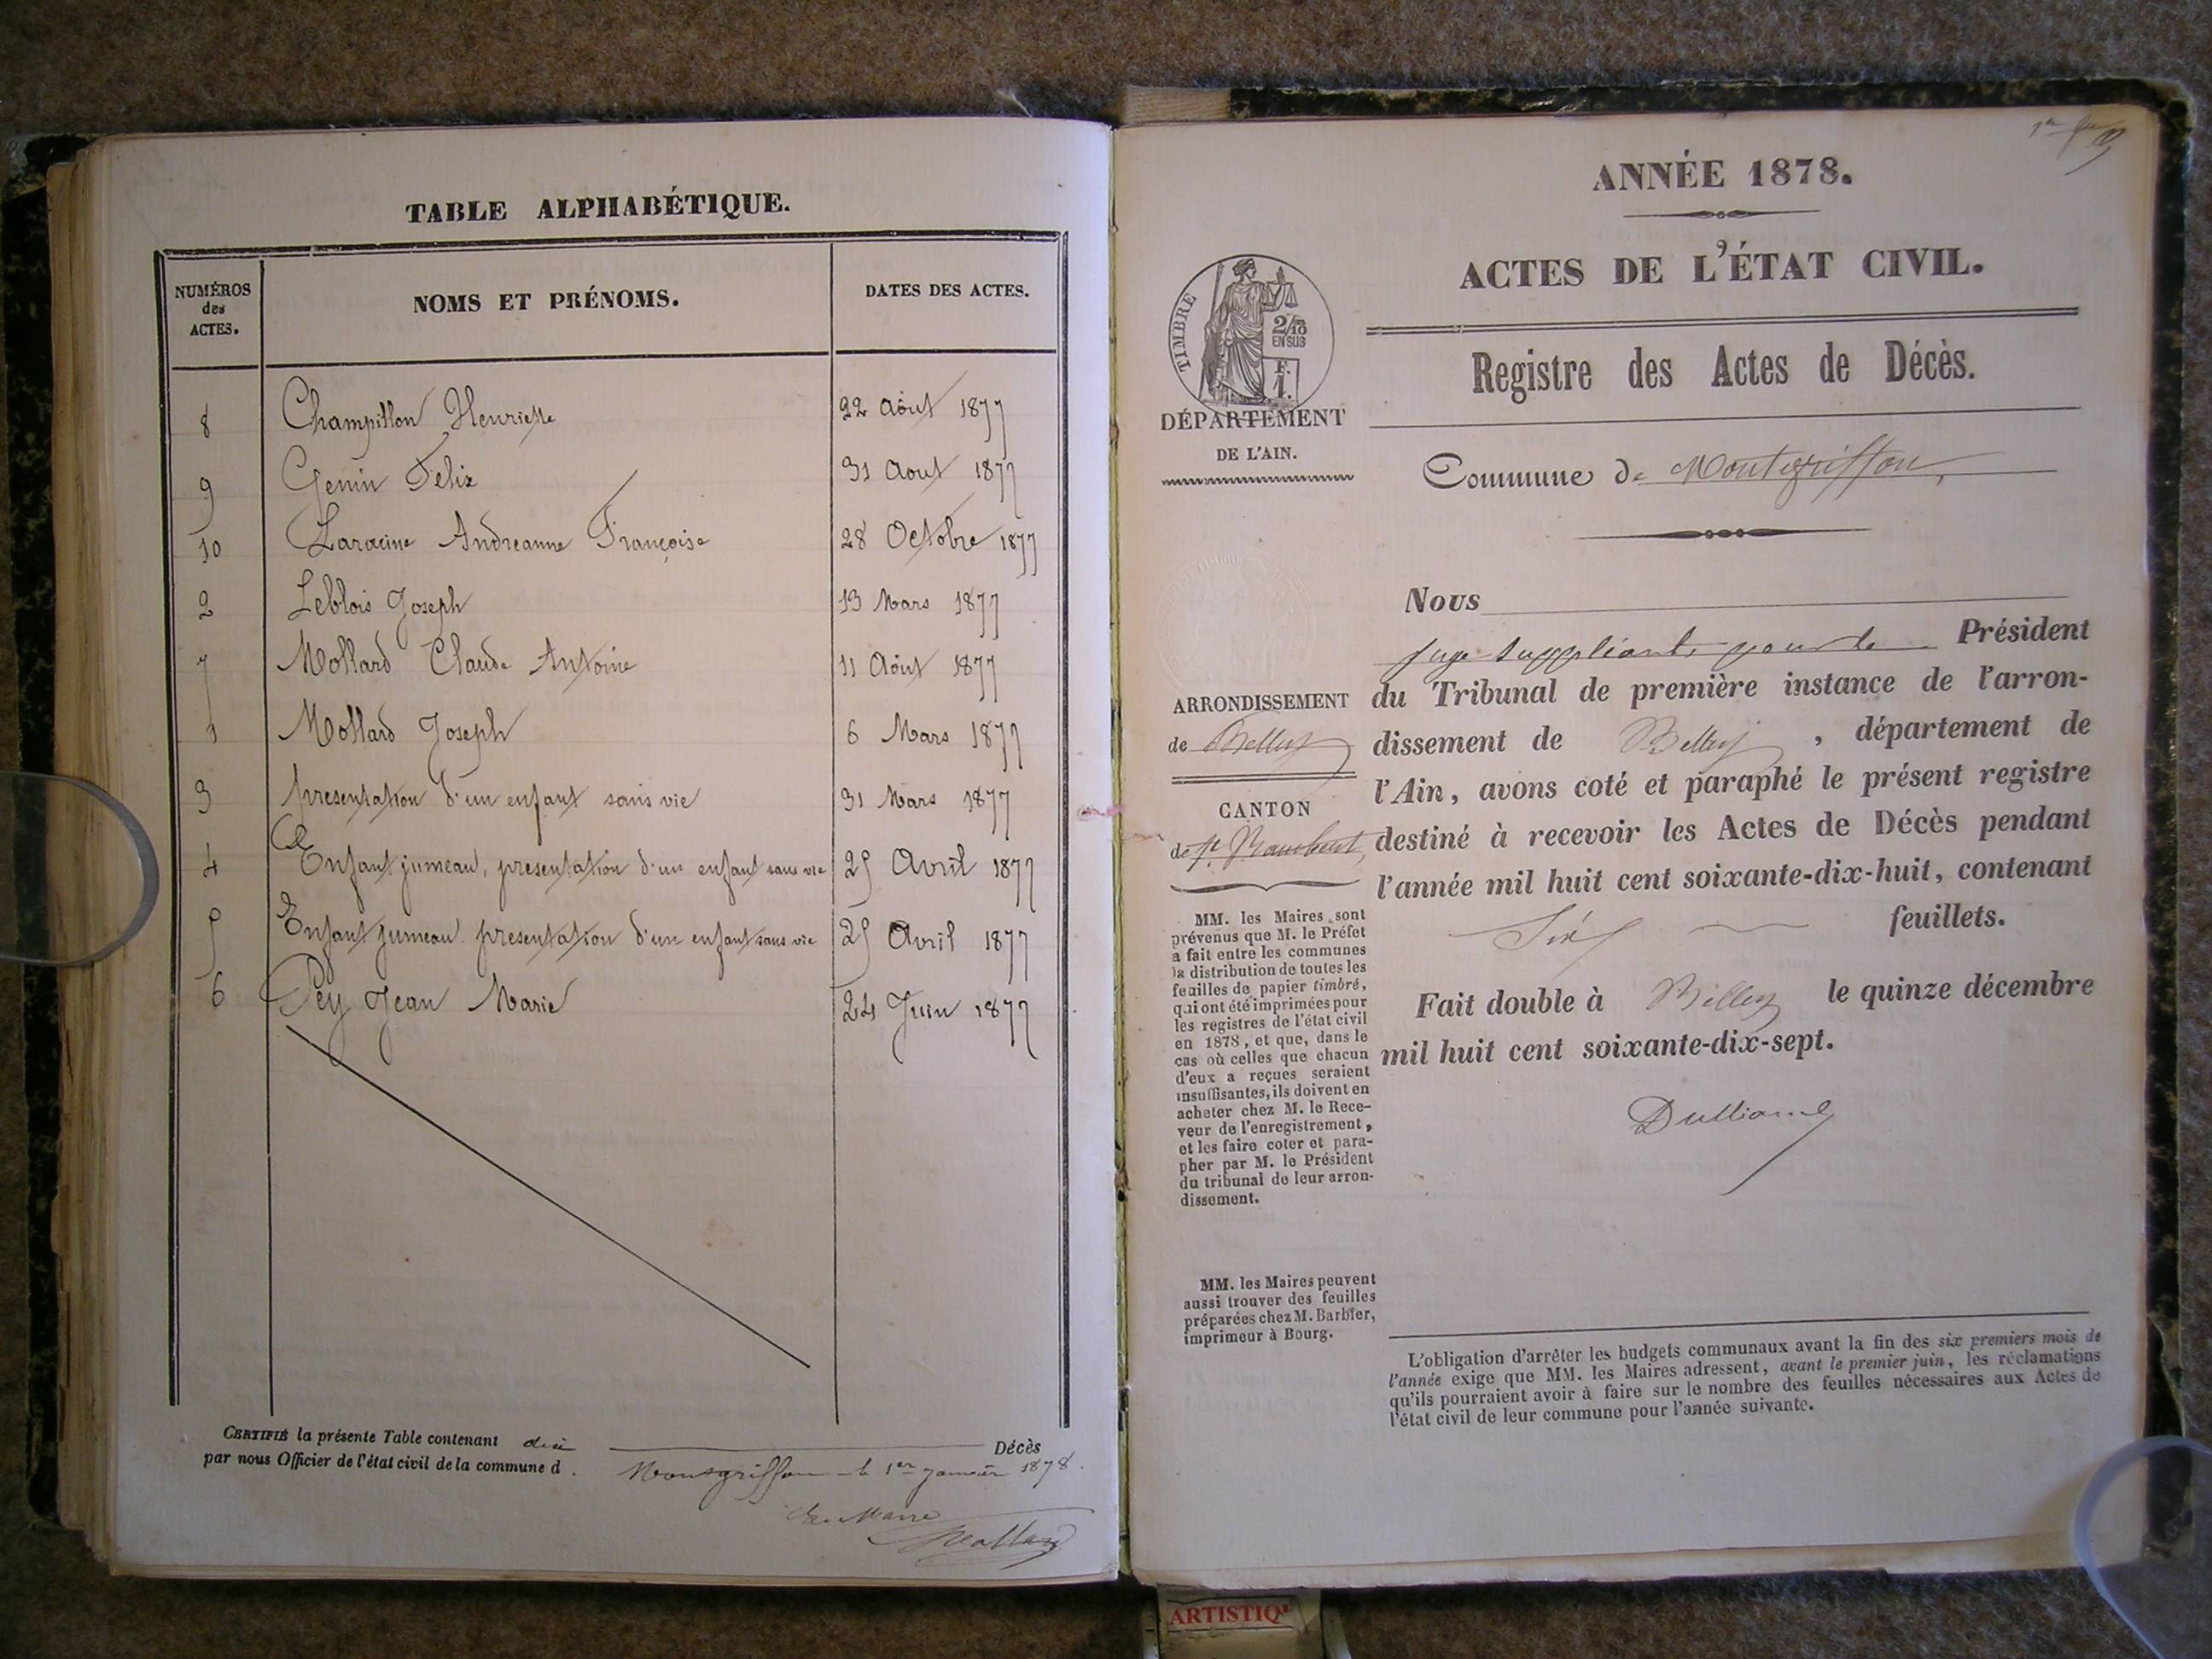 TABLE ALPHABÉTIQUE.
NUMÉROS des ACTES. NOMS ET PRÉNOMS. DATES DES ACTES.
8 Champillon Henriette 22 Août 1877
9 Genin Felix 31 Aout 1877
10 Laracine Andreanne Françoise 28 Octobre 1877
2 Leblois Joseph 13 Mars 1877
7 Mollard Claude Antoine 11 Août 1877
1 Mollard Joseph 6 Mars 1877
3 presentation d'un enfant sans vie 31 Mars 1877
4 Enfant jumeau, presentation d'un enfant sans vie 25 Avril 1877
5 Enfant jumeau presentation d'un enfant sans vie 25 Avril 1877
6 Pey Jean Marie 24 Juin 1877
CERTIFIÉ la présente Table contenant dix Décès
par nous Officier de l'état civil de la commune d
Montgriffon le 1er janvier 1878.
Le Maire
Mollard
ANNÉE 1878.
ACTES DE L'ÉTAT CIVIL.
TIMBRE
2/10
EN SUS
F.
1.
DÉPARTEMENT
DE L'AIN.
Registre des Actes de Décès.
Commune de Montgriffon,
ARRONDISSEMENT
de Belley
CANTON
de St. Rambert,
MM. les Maires sont
prévenus que M. le Préfet
a fait entre les communes
la distribution de toutes les
feuilles de papier timbré,
qui ont été imprimées pour
les registres de l'état civil
en 1878, et que, dans le
cas où celles que chacun
d'eux a reçues seraient
insuffisantes, ils doivent en
acheter chez M. le Rece-
veur de l'enregistrement,
et les faire coter et para-
pher par M. le Président
du tribunal de leur arron-
dissement.
MM. les Maires peuvent
aussi trouver des feuilles
préparées chez M. Barbier,
imprimeur à Bourg.
Nous
juge suppléant, pour le Président
du Tribunal de première instance de l'arron-
dissement de Belley, département de
l'Ain, avons coté et paraphé le présent registre
destiné à recevoir les Actes de Décès pendant
l'année mil huit cent soixante-dix-huit, contenant
Six feuillets.
Fait double à Belley le quinze décembre
mil huit cent soixante-dix-sept.
L'obligation d'arrêter les budgets communaux avant la fin des six premiers mois de
l'année exige que MM. les Maires adressent, avant le premier juin, les réclamations
qu'ils pourraient avoir à faire sur le nombre des feuilles nécessaires aux Actes de
l'état civil de leur commune pour l'année suivante.
ARTISTIQ